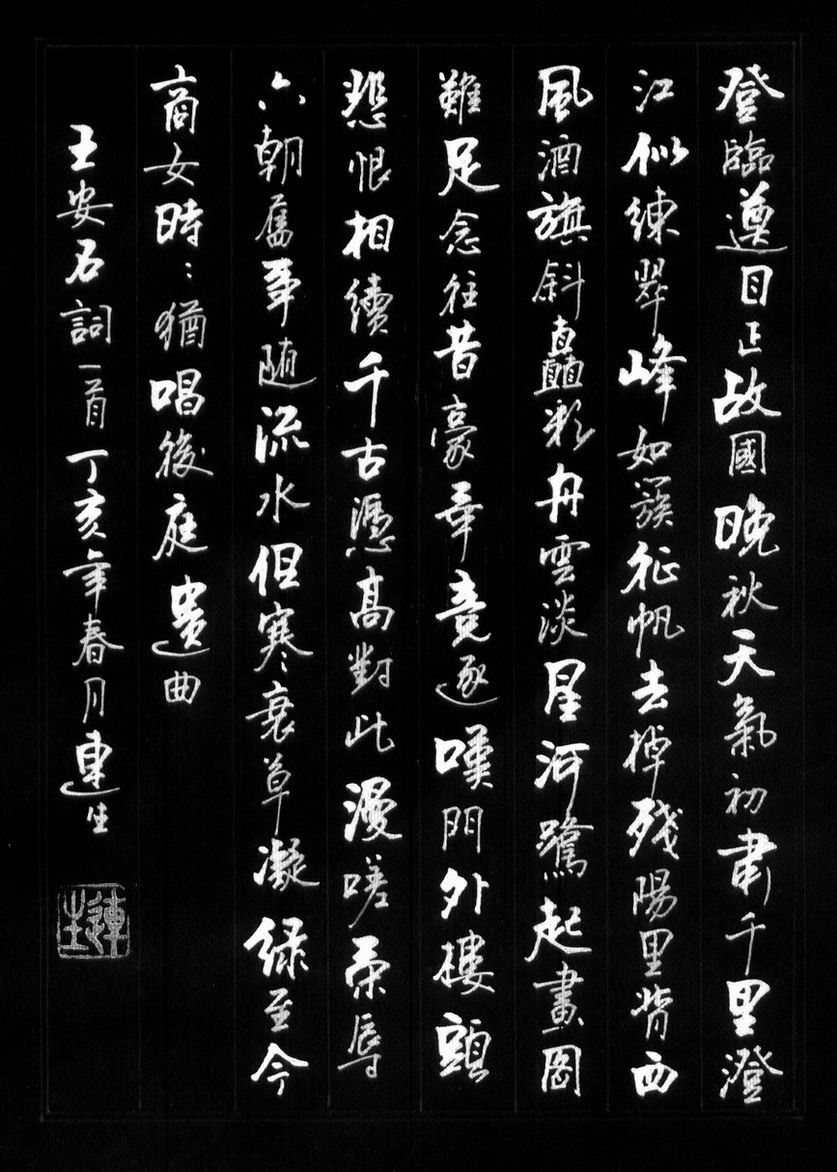 登臨遵目正故國晚秋天氣初肅千里澄
江似練翠峰如簇征帆去棹残陽里背西
風酒旗斜矗彩舟雲淡星河鷺起畫圖
難足念往昔豪華竞逐嘆門外樓頭
悲恨相續千古憑高對此漫嗟荣辱
六朝舊事随流水但寒衰草凝緑至今
商女時：猶唱後庭遺曲
王安石詞一首丁亥年春月連生
連生